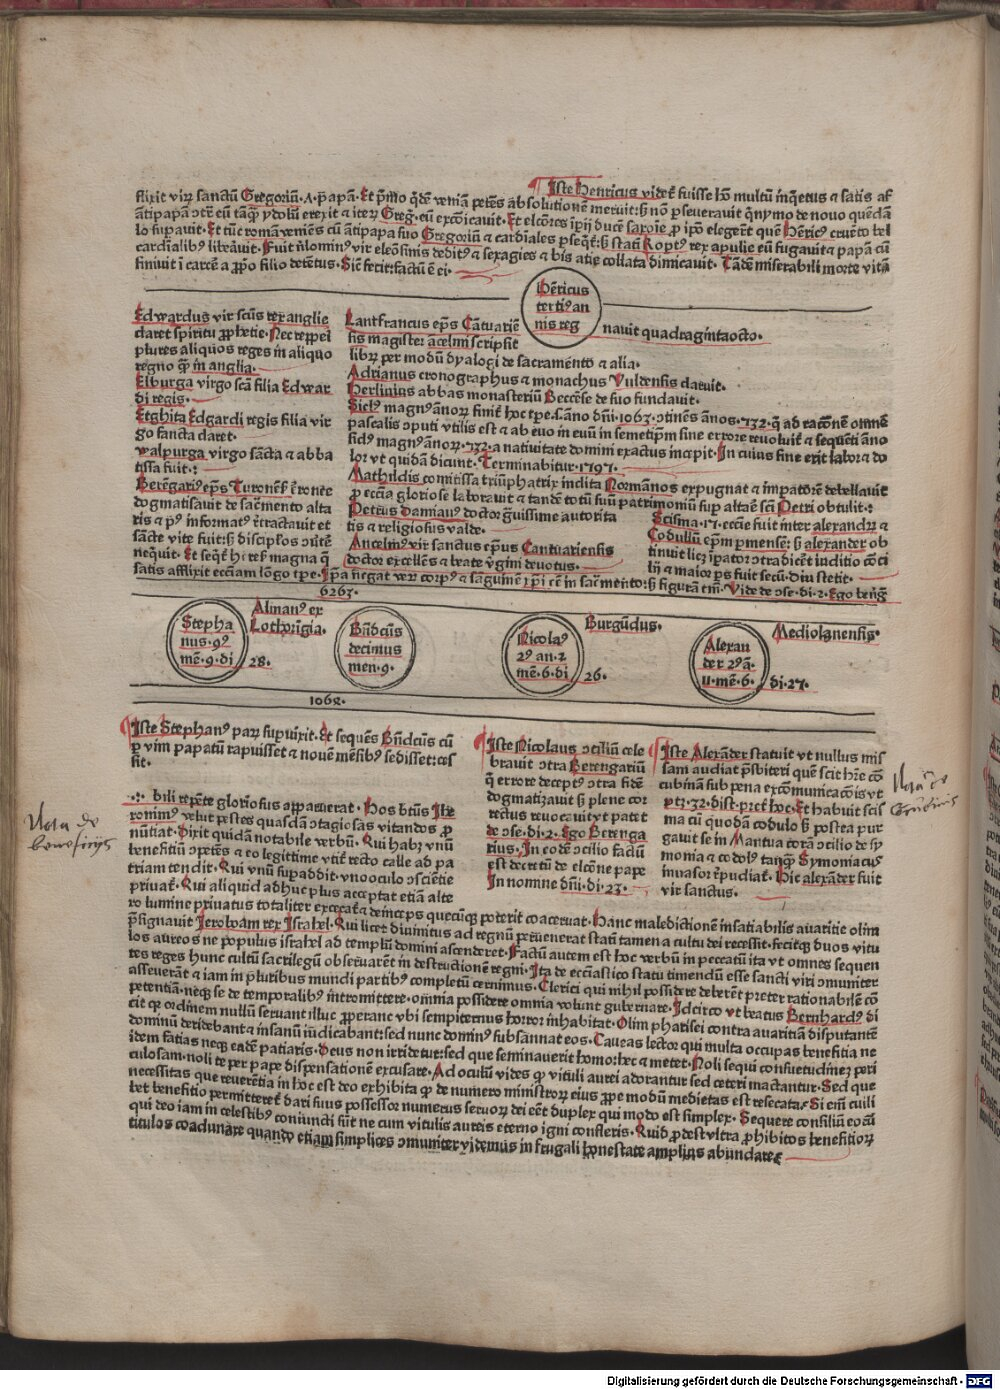 Iste Henricus videt̄ fuisse hō multū inq̄etus ⁊ satis af
flixit viꝝ sanctū Gregoriū.
antipapā ↄtͣ eū tāqͣ ydolū erexit ⁊ iteꝝ Greg. cū excōicavit.
lo fupavit. Et tūc romā veniēs cū antipapa suo Gregoriū ⁊ cardiales
cardialibꝰ libeͣuit.
finiuit ī carcē a ꝓpo filio detētus. Sic̄ fecit: factū ē ei.
Hēricus
tertiꝰ an
nis reg
nauit quadragintaocto.
Edwardus vir scūs rex anglie
claret spiritu ꝓphetie. Nec reppei
plures aliquos reges in aliquo
regno qͣ̄ in anglia.
Elburga virgo scā filia Edwar
di regis.
Etghita Edgardi regis filia vir
go sancta claret.
walpurga virgo sācta ⁊ abba
tissa fuit:
Berēgariꝰ ep̄s Turonēs̄ erronee
dogmatisauit de sacͣmento alta
ris ⁊ pꝰ informatꝰ ↄ̄tractauit et
sācte vite fuit: sꝫ discipl̄os
neq̄uit. Et seq̄t̄ heres̄ magna q̄
satis afflixit ecciam lōgo tꝑe.
Lantfrancus ep̄s Cātuariē
sis magister ācelmi scripsit
libꝝ per modū dyalogi de sacramēto ⁊ alia.
Adrianus cronographus ⁊ monachus Vuldensis claruit.
Herlinius abbas monasteriū Beccēse de suo fundauit.
Siclꝰ magnꝰ ānoꝝ finit̄ hoc tꝑe. s. āno dn̄i. 1063. ↄtinēs ānos. 532. q̄ ad racōnē omnē
pascalis ↄputi vtilis est ⁊ ab euo in euū in semetip̄m sine errore reuoluit̄ ⁊ sequēti āno
sicłꝰ magnꝰ ānoꝝ. 532. a natiuitate domini exactus incipit. In cuius fine erit labor ⁊ do
lor vt quidā dicunt. Terminabitur. 1595.
Mathildis comitissa triūphatrix inclita Normānos expugnat ⁊ impatorē debellauit
ꝓ eccīa gloriose laborauit ⁊ tandē totū suū patrimoniū suꝑ altaē scī Petri obtulit:
Petrus damianꝰ doctor gͣuissime autorita
tis ⁊ religiosus valde.
Ancelmꝰ vir sanctus ep̄us Cantuariensis
doctor excellēs ⁊ beate vͥgini deuotus.
Scisma. 15. eccīe fuit inter alexandꝝ ⁊
Codullū ep̄m ꝑmensē: sꝫ alexander ob
tinuit licꝫ īpator ↄtradicēt
lij ⁊ maior ꝑs fuit secū. diu stetit.
Vide de ↄse. di. 2. Ego berīg
6263.
Stepha
nus. 9ꝰ
mē. 9. di
28.
Almanꝰ ex
Lothorīgia.
Bn̄dcūs
decimus
men. 9.
Nicolaꝰ
2ꝰ an. 2
mē. 6. di
26.
Burgūdus.
Alexan
der 2ꝰ ā.
11. mē. 6.
di. 27.
Mediolanensis.
1062.
Iste Stephanꝰ paꝝ supuixit. Et sequēs Bn̄dcūs cū
ꝑ vim papatū rapuisset ⁊ nouē mēsibꝰ sedisset: ces
sit.
Iste Nicolaus ↄciliū cele
brauit ↄtra Berengariū
q̄ errore deceptꝰ ↄtra fidē
dogmatizauit sꝫ plene cor
rectus reuocauit vt patet
de ↄse. di. 2. Ego Berenga
rius. In eodē ↄcilio factū
est decretū de elcōne pape
In nomne dn̄i. di. 23.
Iste Alexāder statuit vt nullus mis
sam audiat p̄sbiteri quē scit hr̄e cō
cubinā sub pena excōmunicacōis vt
ptꝫ. 32. dist. pret̄ hoc. Et habuit scis
ma cū quodā codulo sꝫ postea pur
gauit se in Mantua corā ↄcilio de sy
monia ⁊ codolꝰ tāqͣ Symoniacus
inuasor r̄pudiat̄. Hic alexāder fuit
vir sanctus.
bili repēte gloriosus apparuerat. Hos btūs Ihe
ronimꝰ velut pestes quasdā ↄtagiosas vitandos ꝓ
nūtiat. Dixit quidā notabile verbū. Qui habꝫ vnū
benefitiū ↄpetēs ⁊ eo legittime vtit̄ recto calle ad pa
triam tendit. Qui vnū supaddit. vno oculo ↄscietie
priuat̄. Qui aliquid adhuc plus acceptat etiā alte
ro lumine priuatus totaliter excecat̄ ⁊ deinceps quecūqꝫ poterit coaceruat. Hanc maledictionē insatiabilis auaritie olim
p̄signauit Ieroboam rex Israhel. Qui licet diuinitus ad regnū peruenerat statī tamen a cultu dei recessit. fecitqꝫ duos vitu
los aureos ne populus israhel ad templū domini ascenderet. Factū autem est hoc verbū in peccatū ita vt omnes sequen
tes reges hunc cultū sacrilegū obseruarēt in destructionē regni. Ita de eccīastico statu timendū esse sancti viri ↄmuniter
asseuerāt ⁊ iam in pluribus mundi partibꝰ completū cernimus. Clerici qui nihil possidere deberēt preter rationabilē cō
petentiā. neqꝫ se de temporalibꝰ intromittere. omnia possidere omnia volunt gubernare. Idcirco vt beatus Bernhardꝰ di
cit qꝫ ordinem nullū seruant illuc ꝓperanc vbi sempiternus horror inhabitat. Olim pharisei contra auaritiā disputantē
dominū deridebant ⁊ insanū iudicabant: sed nunc dominꝰ subsannat eos. Caueas lector qui multa occupas benefitia ne
idem facias neqꝫ eadē patiaris. Deus non irridetur: sed que seminauerit homo: hec ⁊ metet. Noli sequi consuetudinez peri
culosam. noli te per pape dispensationē excusare. Ad oculū vides ꝙ vituli aurei adorantur sed ceteri mactantur. Sed que
necessitas que reuerētia in hoc est deo exhibita ꝙ de numero ministroꝝ eius ꝓpe modū medietas est resecata. Si em̄ cuili
bet benefitio permitteret̄ dari suus possessor numerus seruoꝝ dei eēt duplex qui modo est simplex. Sequere consiliū eoꝝ
qui deo iam in celestibꝰ coniuncti sūt ne cum vitulis aureis eterno igni confleris. Quid ꝓdest vltra ꝓhibitos benefitioꝝ
titulos coadunare quando etiam simplices ↄmuniter videmus in frugali honestate amplius abundare
Nota de
beneficijs
Digitalisierung gefördert durch die Deutsche Forschungsgemeinschaft - DFG